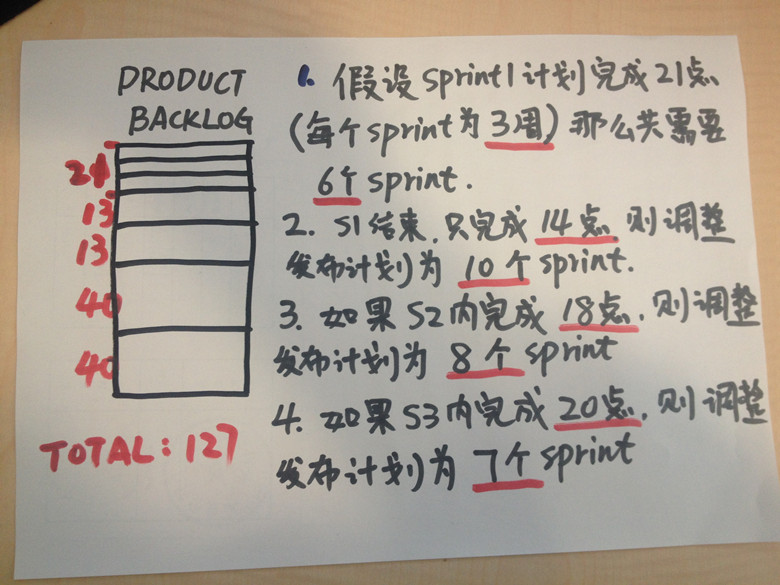 PRODUCT
BACKLOG
21
13
13
40
40
TOTAL: 127
1. 假设sprint1计划完成21点
(每个sprint为3周)那么共需要
6个sprint.
2. S1结束,只完成14点,则调整
发布计划为10个sprint.
3. 如果S2内完成18点,则调整
发布计划为8个sprint
4. 如果S3内完成20点,则调整
发布计划为7个sprint